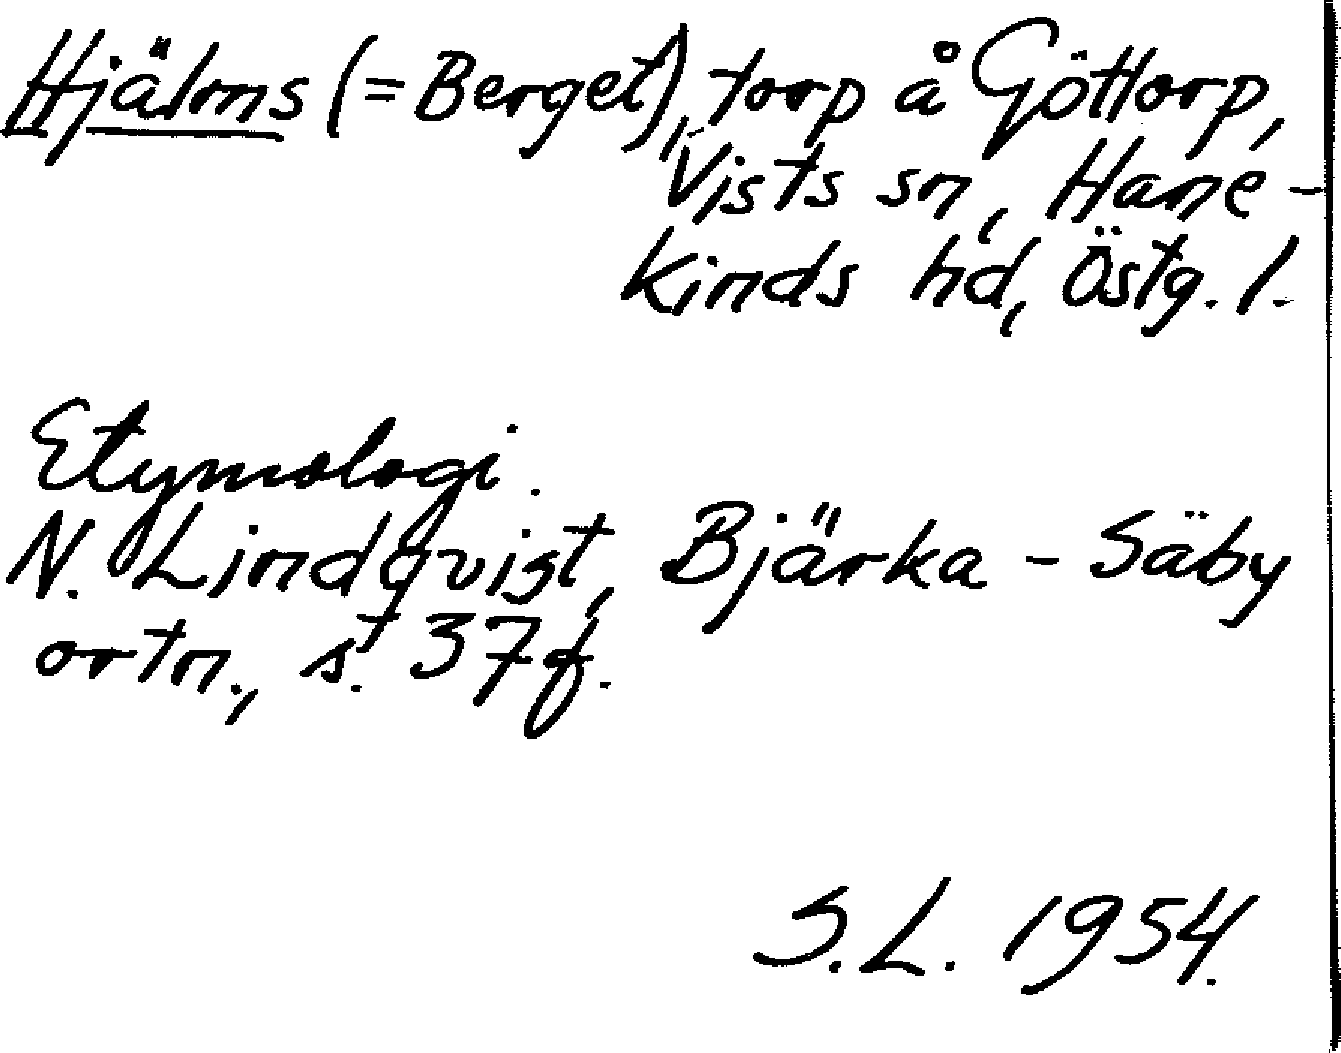 Hjälms (= Berget), torp å Göttorp,
Vists sn, Hane-
kinds hd, Östg. l.
Etymologi.
N. Lindqvist, Bjärka-Säby
ortn., s. 37 f.
S.L. 1954.